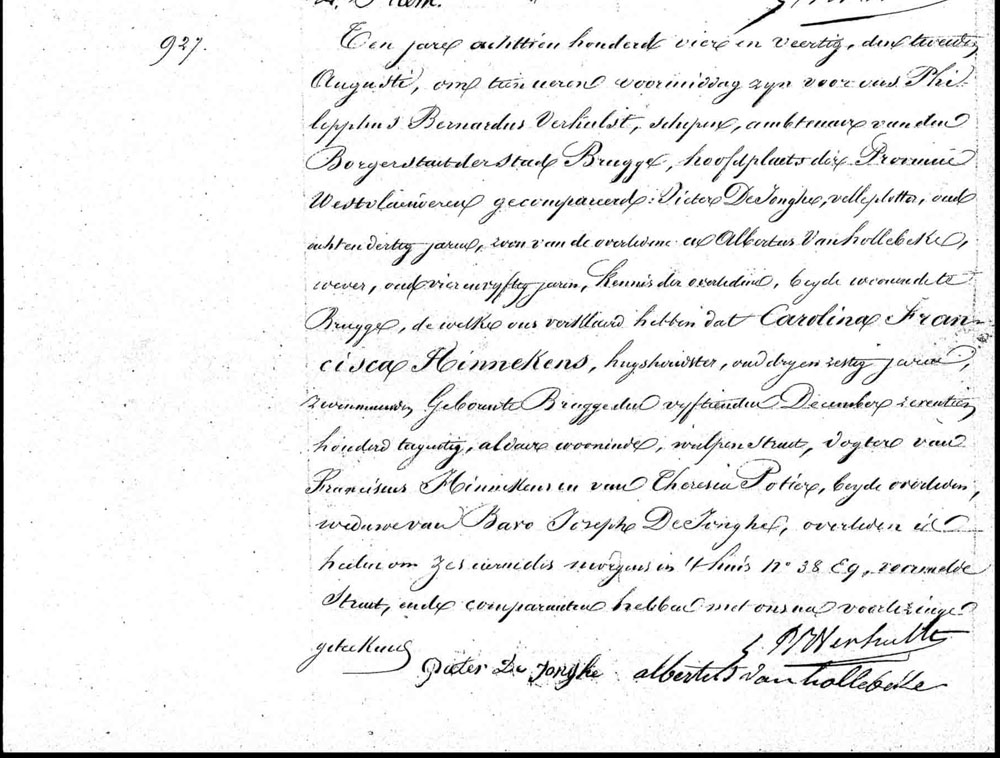 927.
Ten jare achttien honderd vier en veertig, den tweeden
Augusti, om tien ueren voormiddag zyn voor ons Phi-
lipphus Bernardus Verhulst, schepen, ambtenaer van den
Borgerstaet der stad Brugge, hoofdplaets der Provincie
Westvlaenderen gecompareerd: Pieter De Jonghe, velleplotter, oud
acht en dertig jaren, zoon van de overledene en Albertus Vanhollebeke,
wever, oud vier en vyftig jaren, kennis der overledene, beyde woonende te
Brugge, de welke ons verklaerd hebben dat Carolina Fran-
cisca Hinnekens, huyshoudster, oud dry en zestig jaren,
geboorte Brugge den vyftienden December zeventien
honderd tagentig, aldaer woonende, wulpen straet, dogter van
Franciscus Hinnekens en van Theresia Potier, beyde overleden,
weduwe van Bavo Joseph De Jonghe, overleden is
heden om zes ueren des morgens in 't huis N° 38 E9, voormelde
Straet, en de comparanten hebben met ons na voorlezinge
geteekend
Pieter De Jonghe albertus vanhollebeke